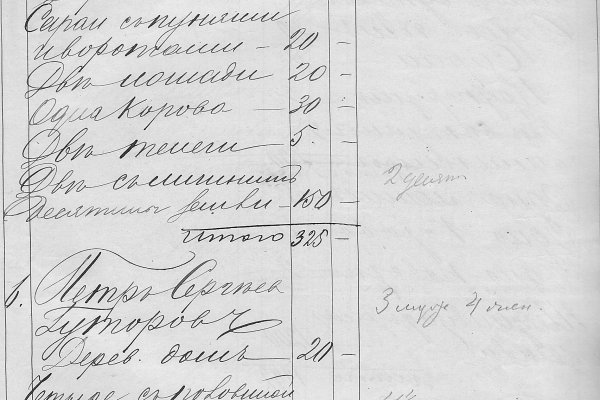 Сараи съ пунями
и воротами — 20 —
Двѣ лошади 20 —
Одна Корова — 30 —
Двѣ телеги 5. —
Двѣ съ
десятины земли — 150 — 2 десят
Итого 325 —
6. Петръ Сергѣев
Гуторовъ 3 муж 4 жен.
Дерев. домъ — 20 —
Четыре съ половиной